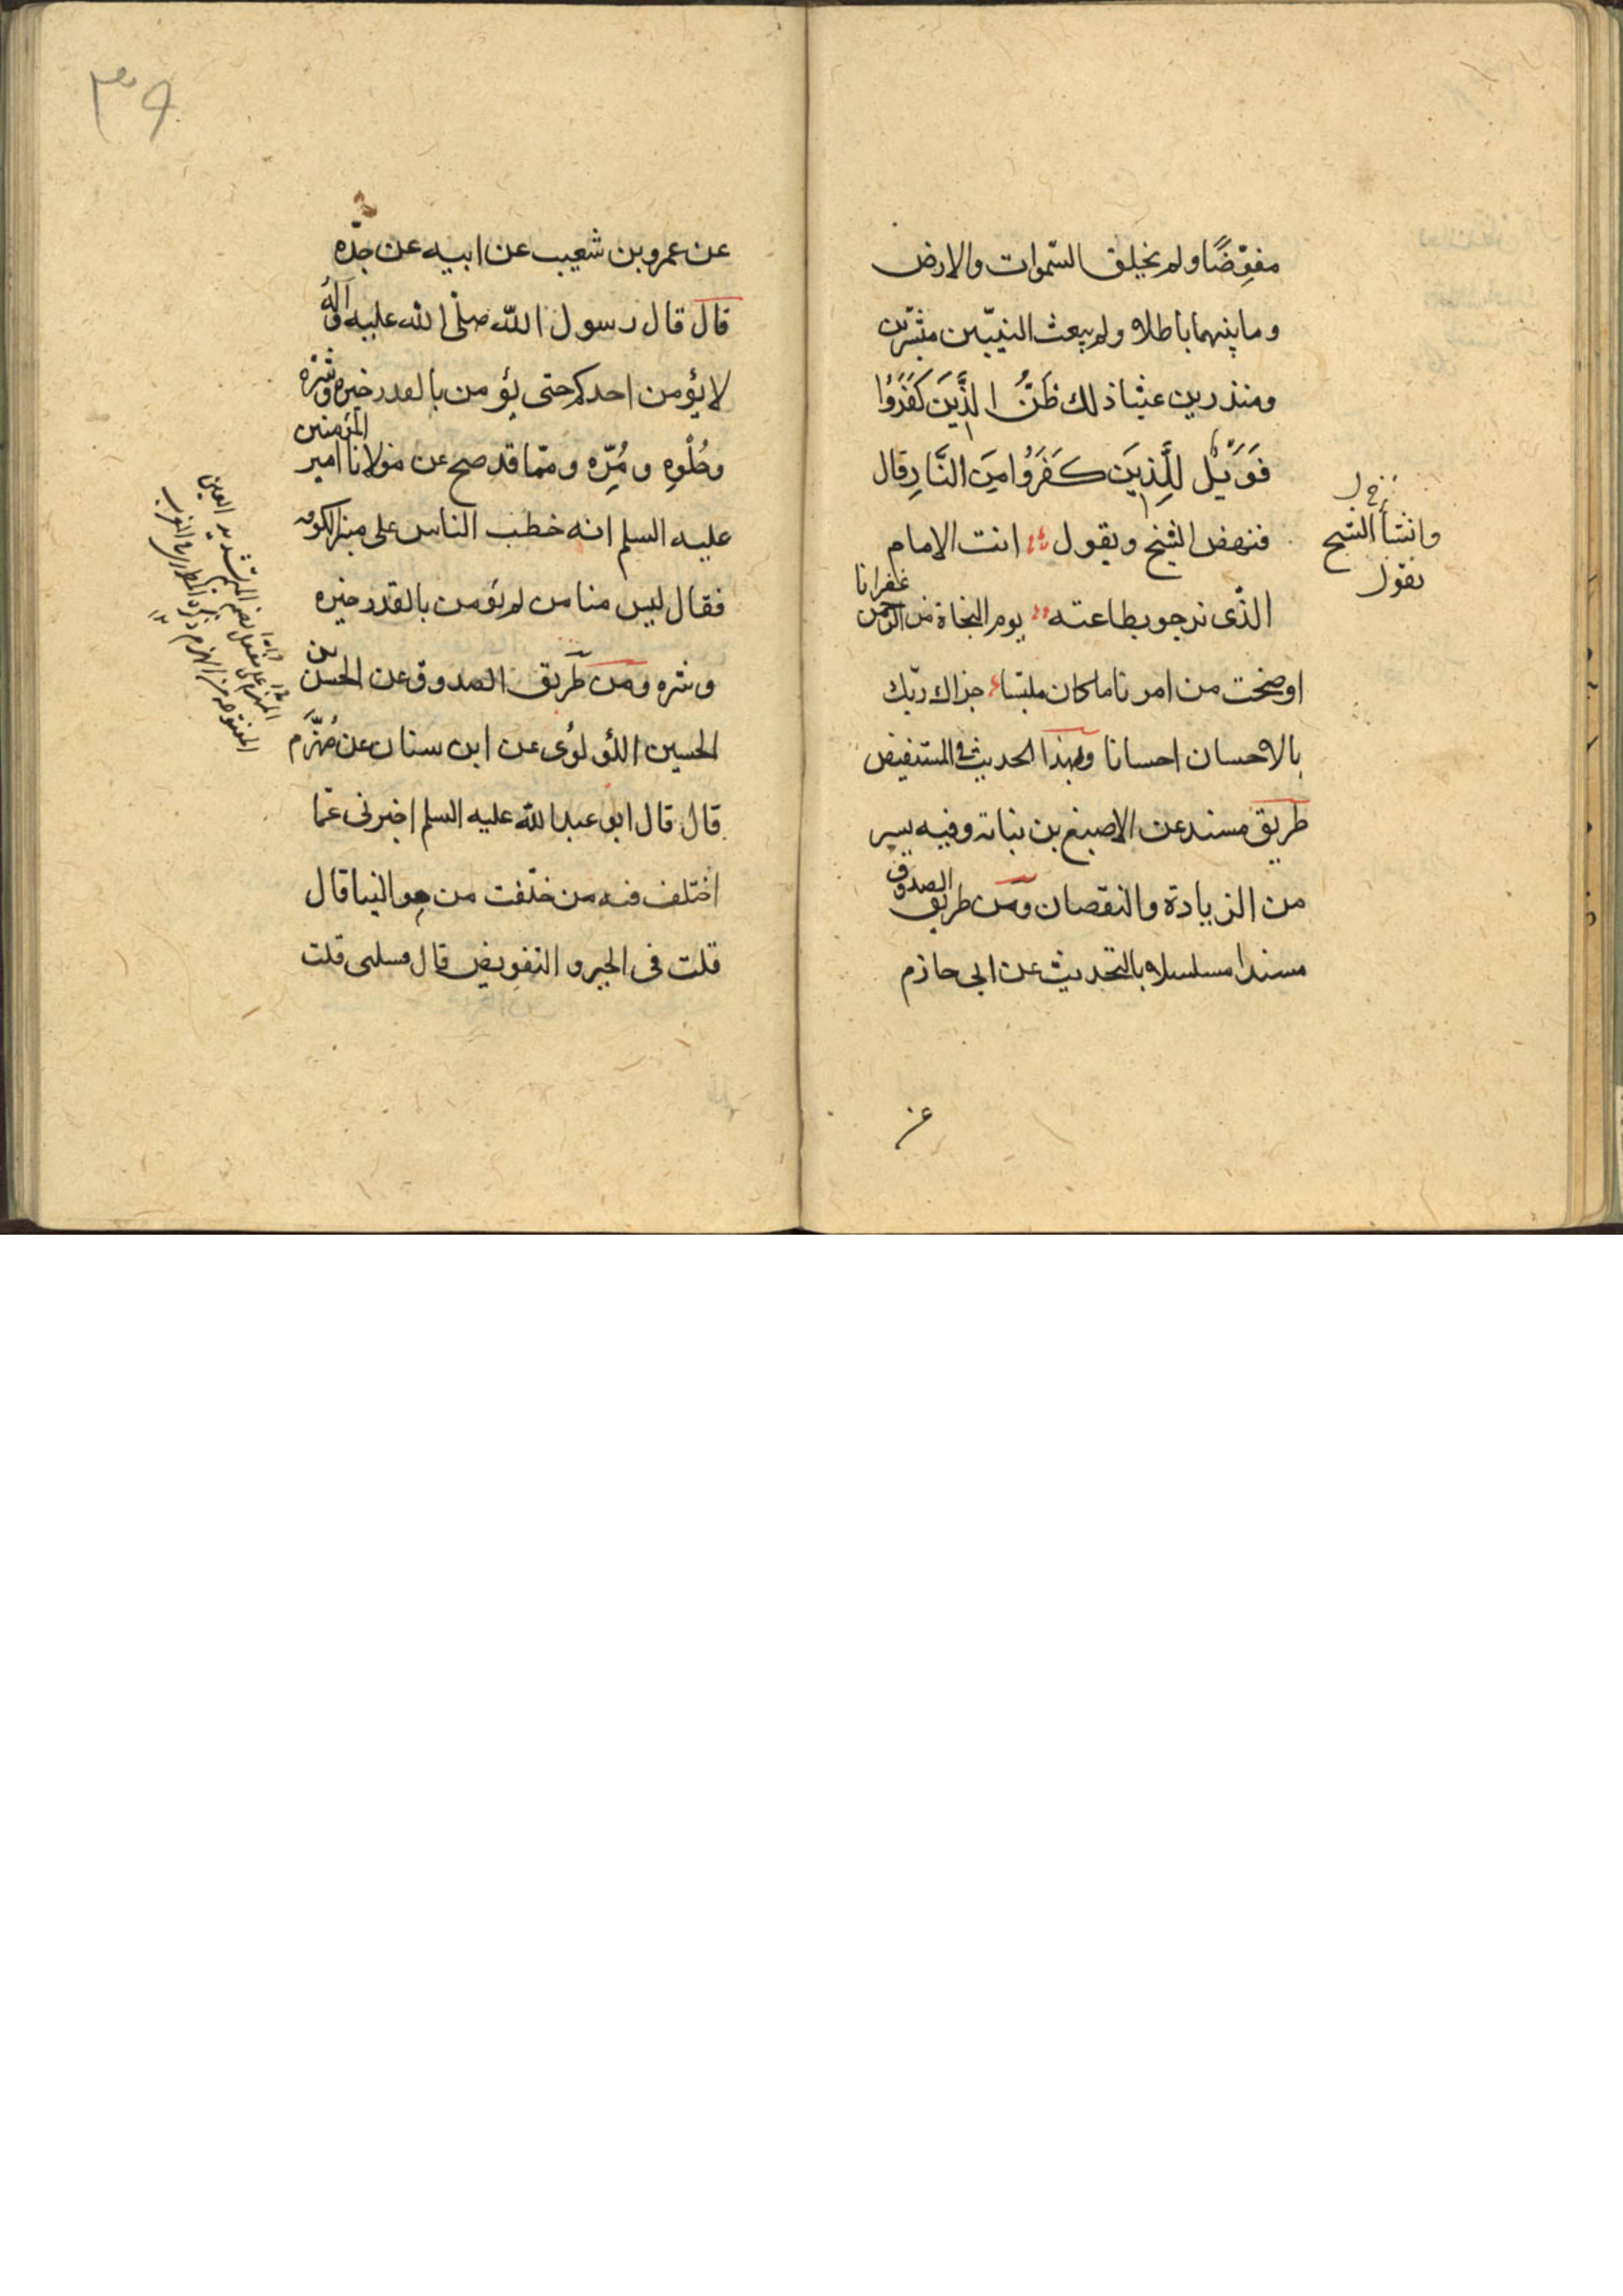 مفوِّضًا ولم يخلق السّموات والارض
وما بينهما باطلا ولم يبعث النبيّين مبشّرين
ومنذرين عبثا ذلك ظَنُّ الَّذِينَ كَفَرُوا
فَوَيْلٌ لِلَّذِينَ كَفَرُوا مِنَ النَّارِ قال
فنهض الشيخ ويقول انت الامام
الذى نرجو بطاعته يوم النجاة من الرحمن غفرانا
اوضحت من امرنا ما كان ملتبسا جزاك ربّك
بالاحسان احسانا وبهذا الحديث فى المستفيض
طريق مسند عن الاصبغ بن نباتة وفيه يسير
من الزيادة والنقصان ومن طريق الصدوق
مسندا مسلسلا بالتحديث عن ابى حازم
وانشأ الشيخ
يقول
عن
٣٩
عن عمرو بن شعيب عن ابيه عن جدّه
قال قال رسول الله صلّى الله عليه وآله
لا يؤمن احدكم حتى يؤمن بالقدر خيره وشرّه
وحُلْوِهِ ومُرِّه وممّا قد صح عن مولانا امير المؤمنين
عليه السلم انه خطب الناس على منبر الكوفه
فقال ليس منا من لم يؤمن بالقدر خيره
وشره ومن طريق الصدوق عن الحسن بن
الحسين اللؤلوى عن ابن سنان عن مُهَزَّم
قال قال ابو عبد الله عليه السلم اخبرنى عمّا
اختلف فيه من خلّفت من موالينا قال
قلت فى الجبر والتفويض قال فسلنى قلت